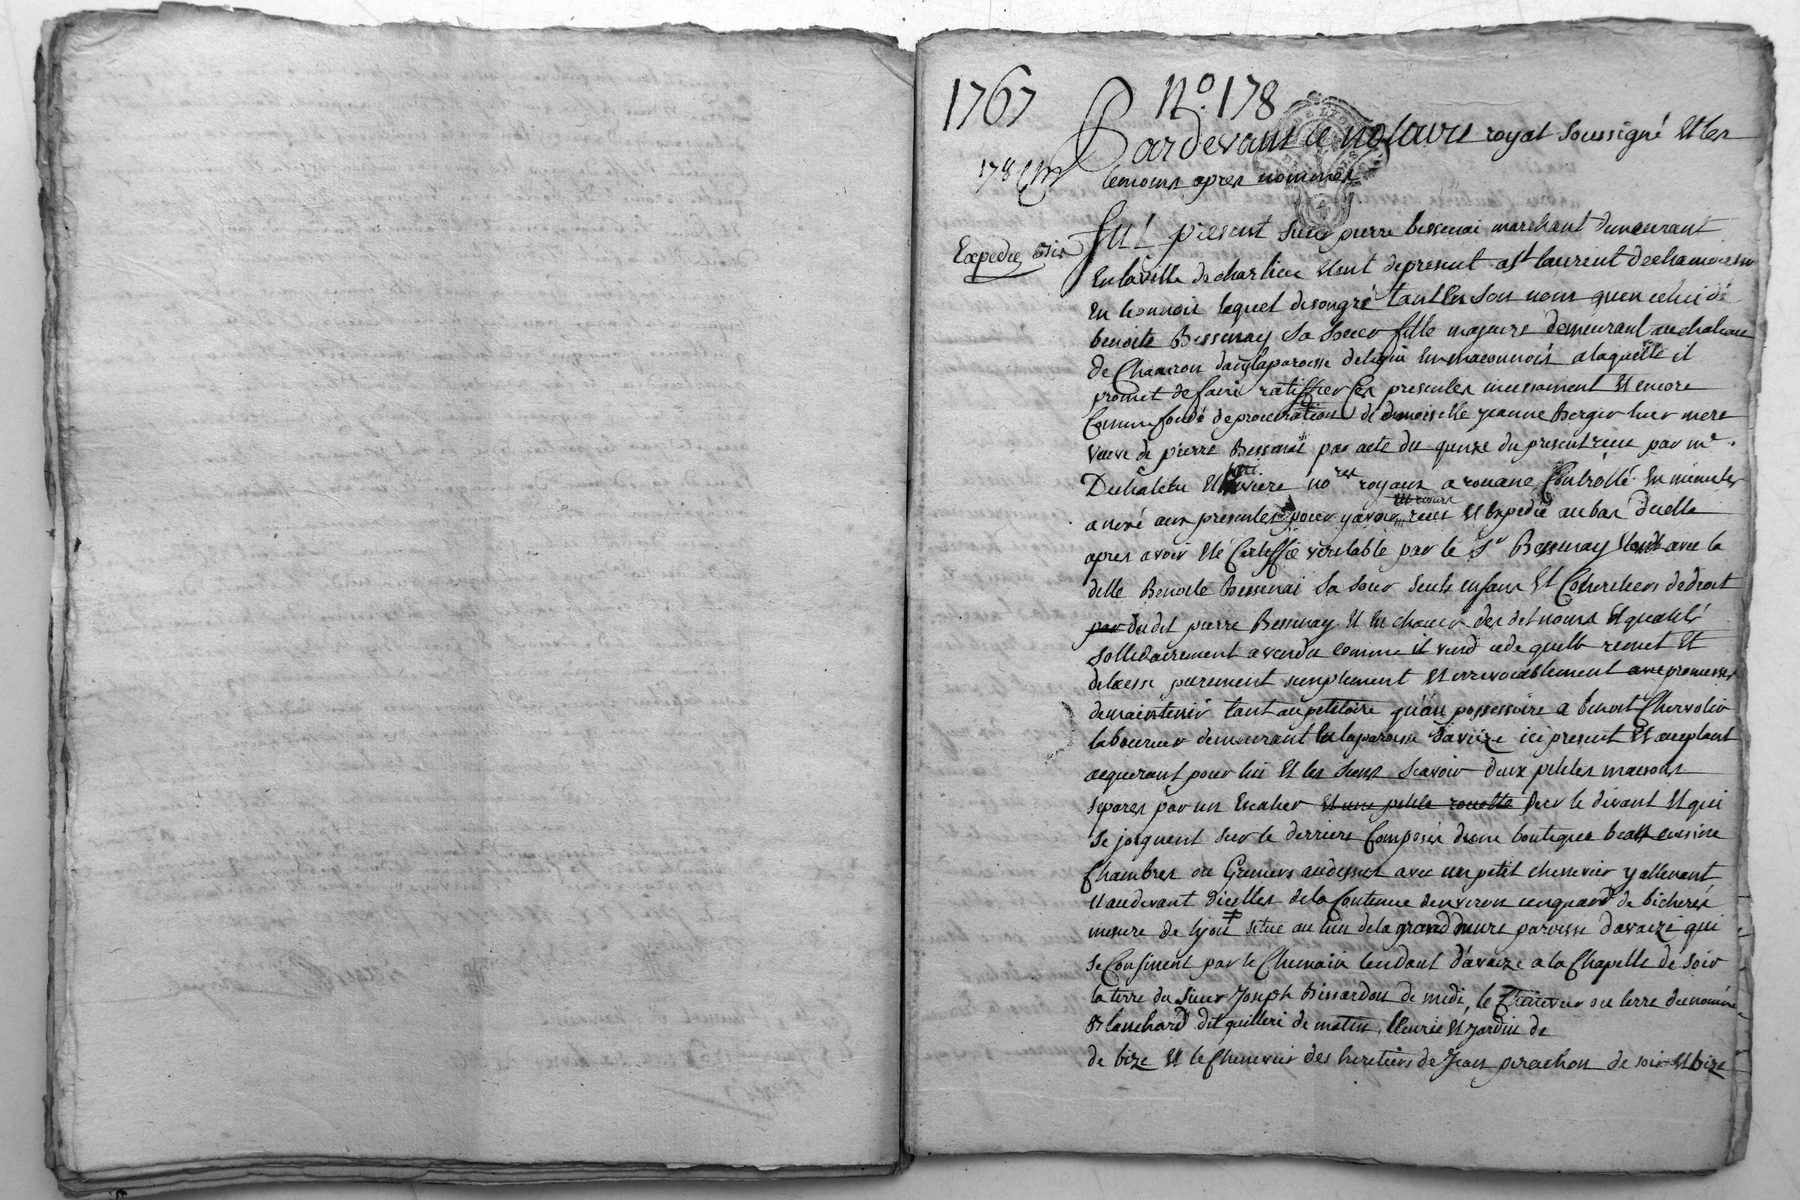 1767 No. 178
Pardevant le notaire royal soussigné Et les
178
temoins apres nommés
fut present sieur pierre bessenai marchant demeurant
Expedié
En la ville de charlieu Etant depresent a st laurent de chamousset
En lionnois lequel de son gré tant En son nom quen celui de
benoite Bessenay sa soeur fille majeure demeurant au chateau
de Chaaron dans la paroisse de ligni En maconnois a laquelle il
promet de faire ratiffier Ces presentes incessament Et encore
Comme fondé de procuration de demoiselle jeanne Bergier leur mere
veuve de pierre Bessenai par acte du quinze du present receu par me.
Dechatelu Et no res royaux a rouane Controllé En minute
anexé aux presentes pour y avoir recours Et Expedié au bas dicelle
apres avoir Eté Certiffié veritable par le Sr Bessenay avec la
delle Benoite Bessenai sa soeur seuls enfans Et Coheritiers de droit
par dudit pierre Bessenay Et En chacun des dits noms Et qualités
sollidairement a vendu comme il vend cede quitte remet Et
delaisse purement simplement Et irrevocablement avec promesse
de maintenir tant au petitoire qu'au possessoire a benoit Chervolin
laboureur demeurant En la paroisse d'avaize ici present Et acceptant
acquerant pour lui Et les siens scavoir deux petites maisons
separes par un Escalier Et une petite rouette sur le devant Et qui
se joignent sur le derriere Composés dune boutique cuisine
Chambres ou Greniers audessus avec un petit chenevier y attenant
Et audevant dicelles de la Contenue denviron cinquart de bicherée
mesure de lyon situé au lieu de la grand meure paroisse davaize qui
se Confinent par le Chemain tendant d'avaize a la Chapelle de soir
la terre du sieur Joseph Bissardon de midi, le Chenevier ou terre du nommé
Blanchard dit quilleri de matin, Et jardin de
de bize Et le Chenevier des heretiers de Jean perachon de soir Et bize